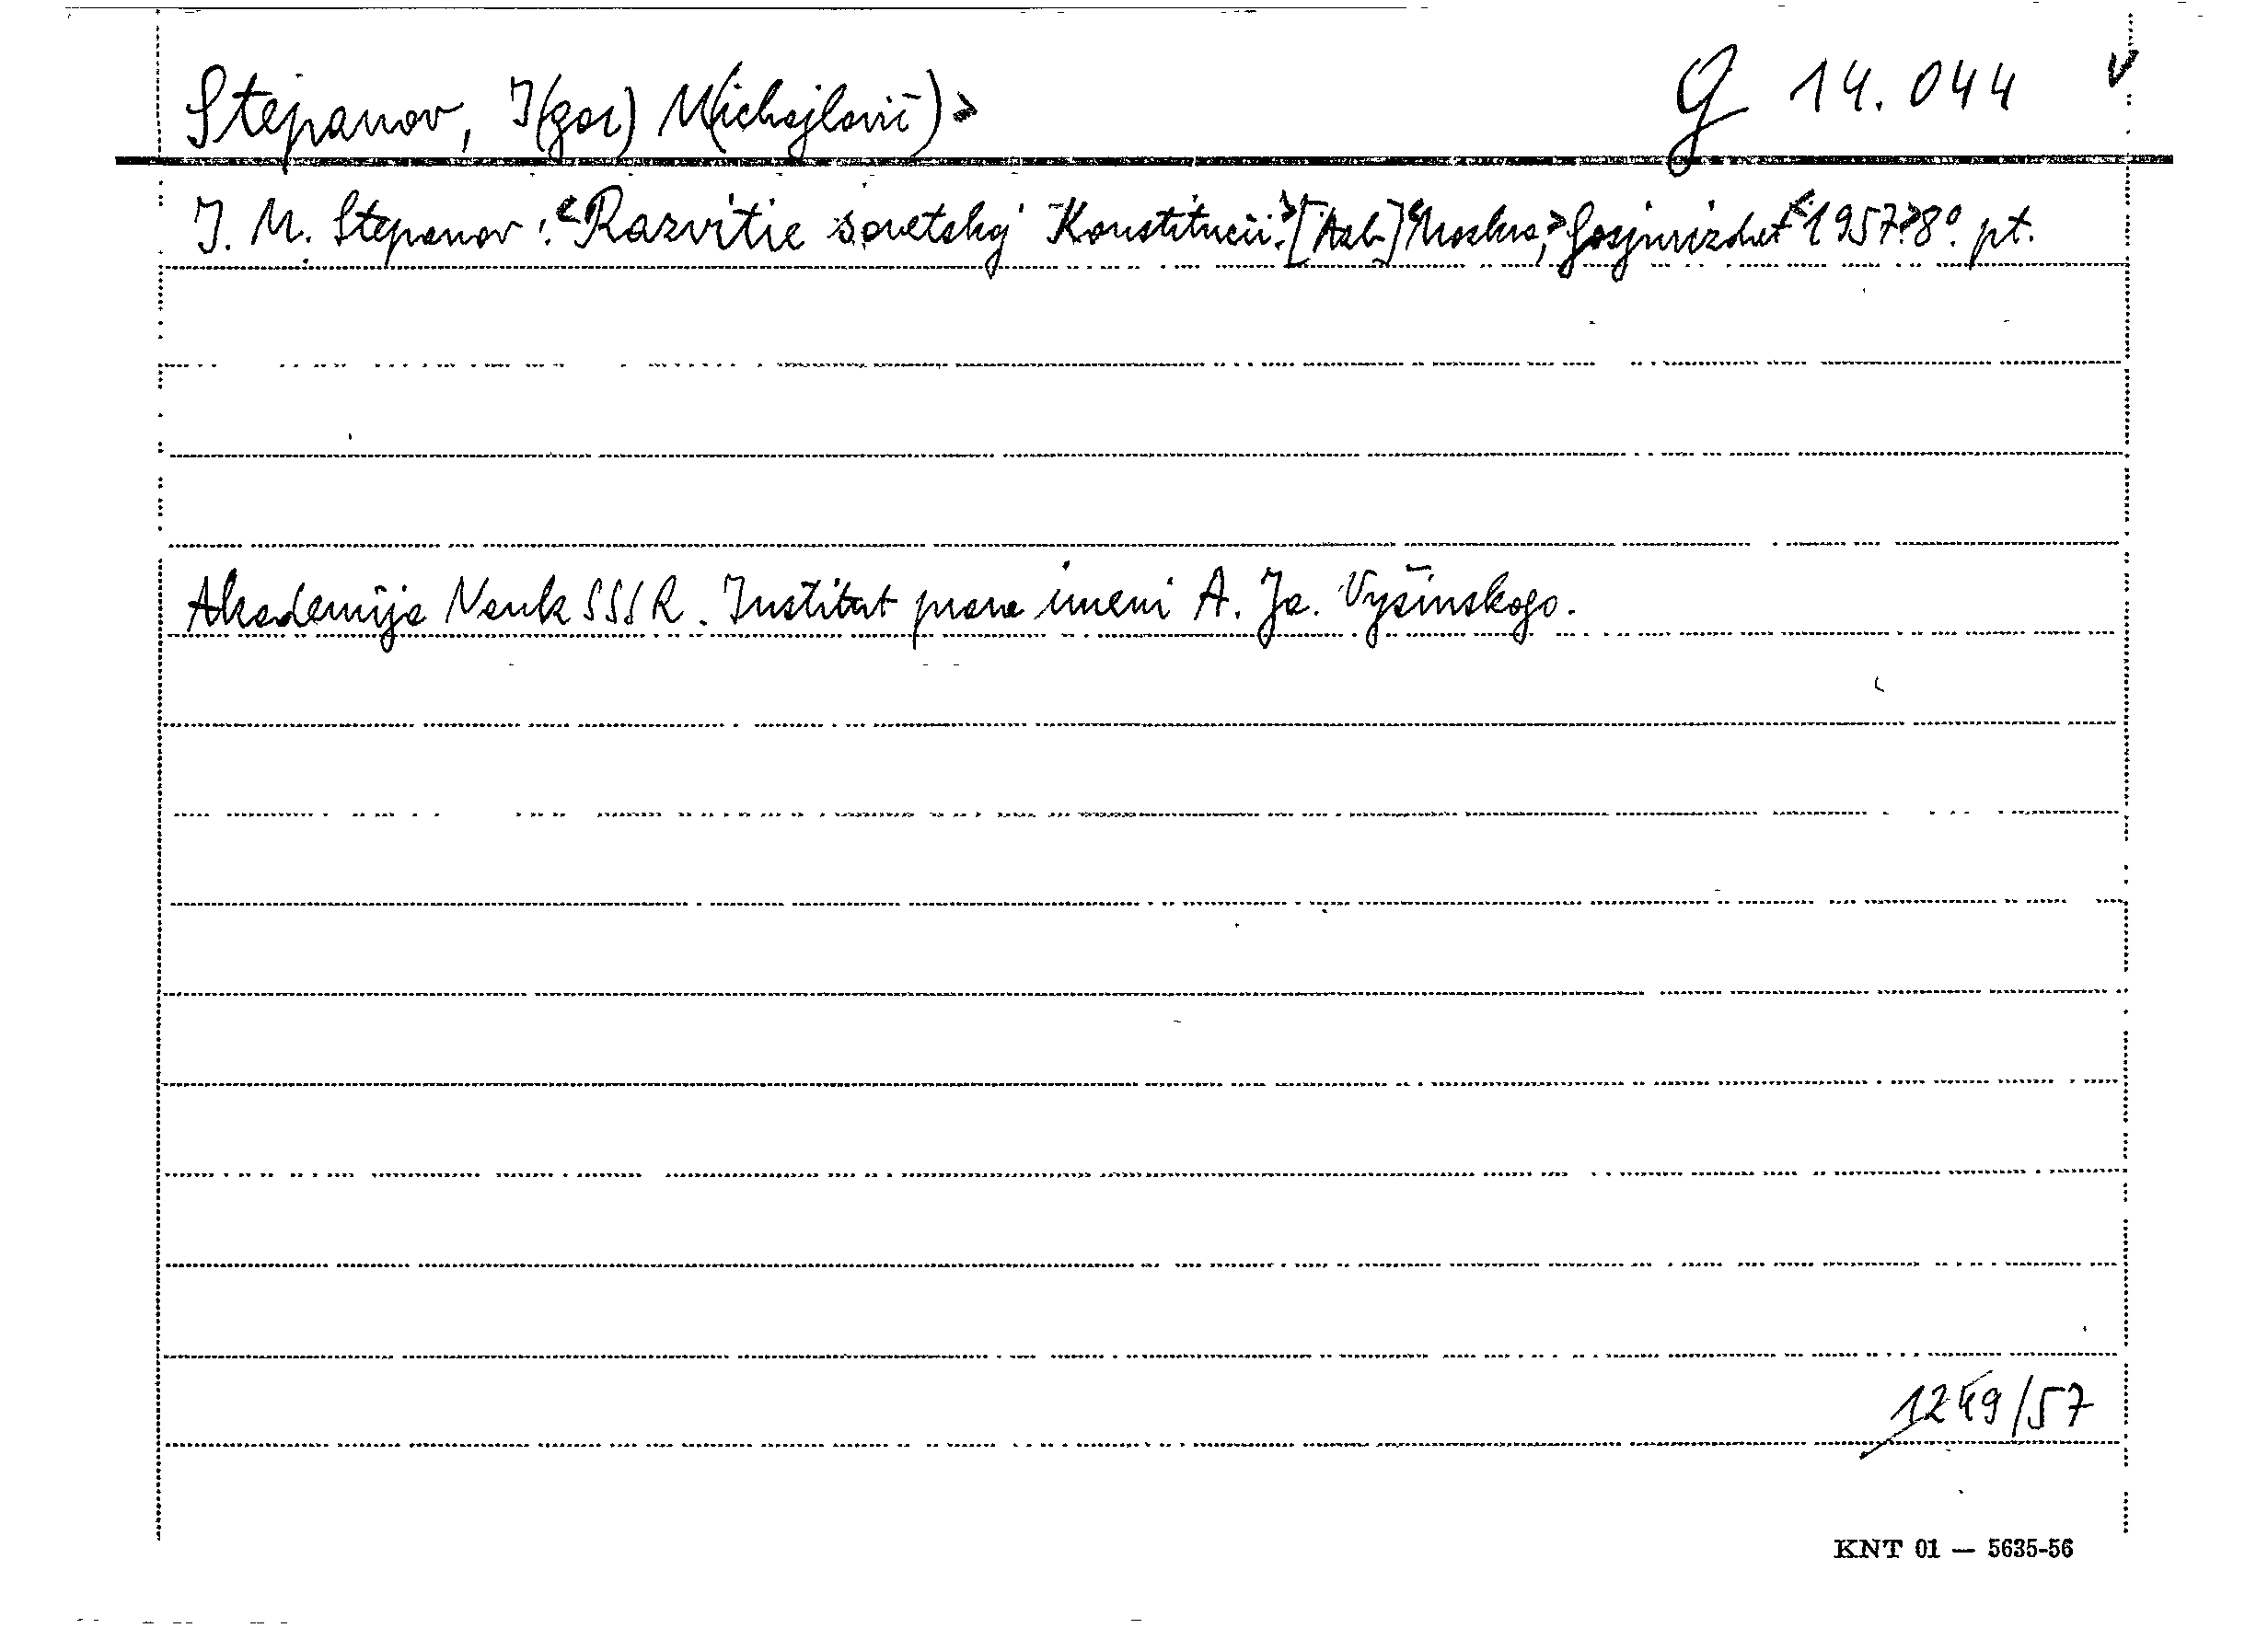 Stepanov, I(gor) M(ichajlovič)> G 14.044 v
I. M. Stepanov: <Razvitie sovetskoj Konstitucii.> [Azb.] <Moskva,> Gosjurizdat <1957.> 8°. pt.
Akademija Nauk SSSR. Institut prava imeni A. Ja. Vyšinskogo.
1249/57
KNT 01 — 5635-56